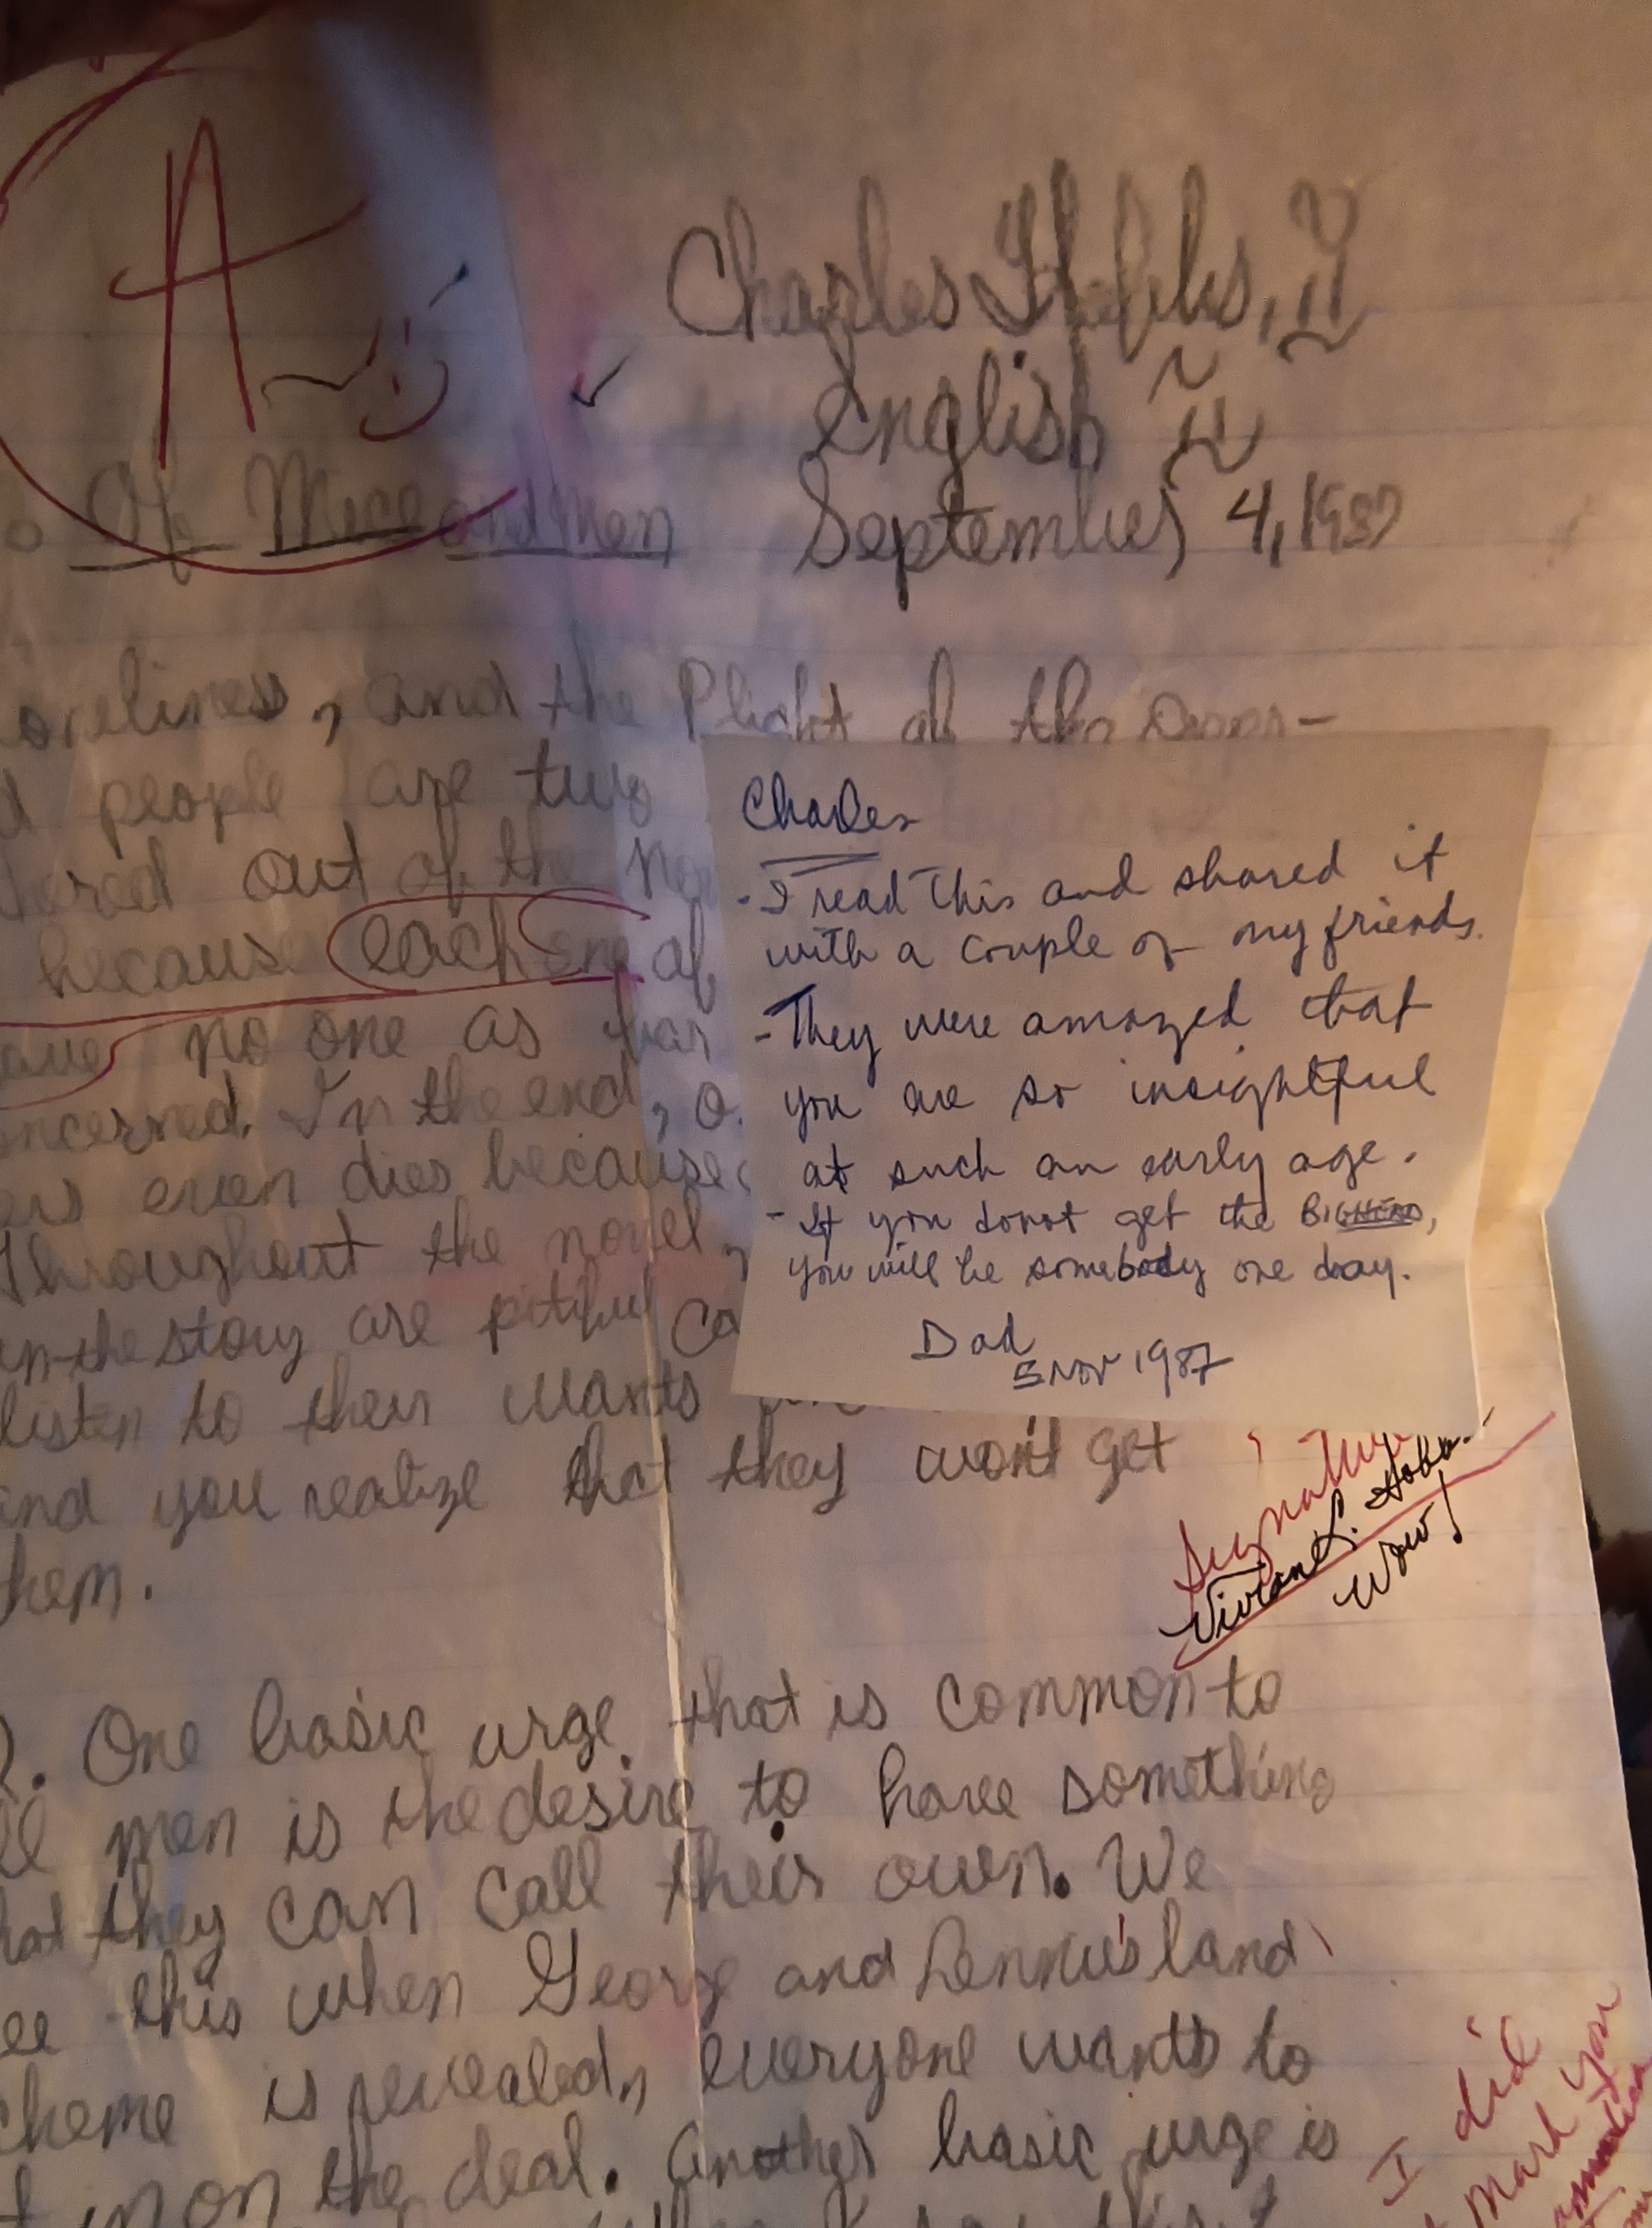 A
Charles
English II
Of Mice and Men
September 4, 1987
oneliness, and the Plight of the Oppr-
d people are two
dered out of the
because each one of
ave no one as far
oncerned. In the end, o
ers even dies because
Throughout the novel,
in the story are pitiful
listen to their wants
and you realize that they won't get
them.
Charles
- I read this and shared it
with a couple of my friends.
- They were amazed that
you are so insightful
at such an early age.
- If you donot get the BIGHEAD,
you will be somebody one day.
Dad
5 Nov 1987
Signature
Vivian L.
Wow!
2. One basic urge that is common to
ll men is the desire to have something
hat they can call their own. We
ee this when George and Lennie's land
cheme is revealed, everyone wants to
t in on the deal. Another basic urge is
I did
mark you